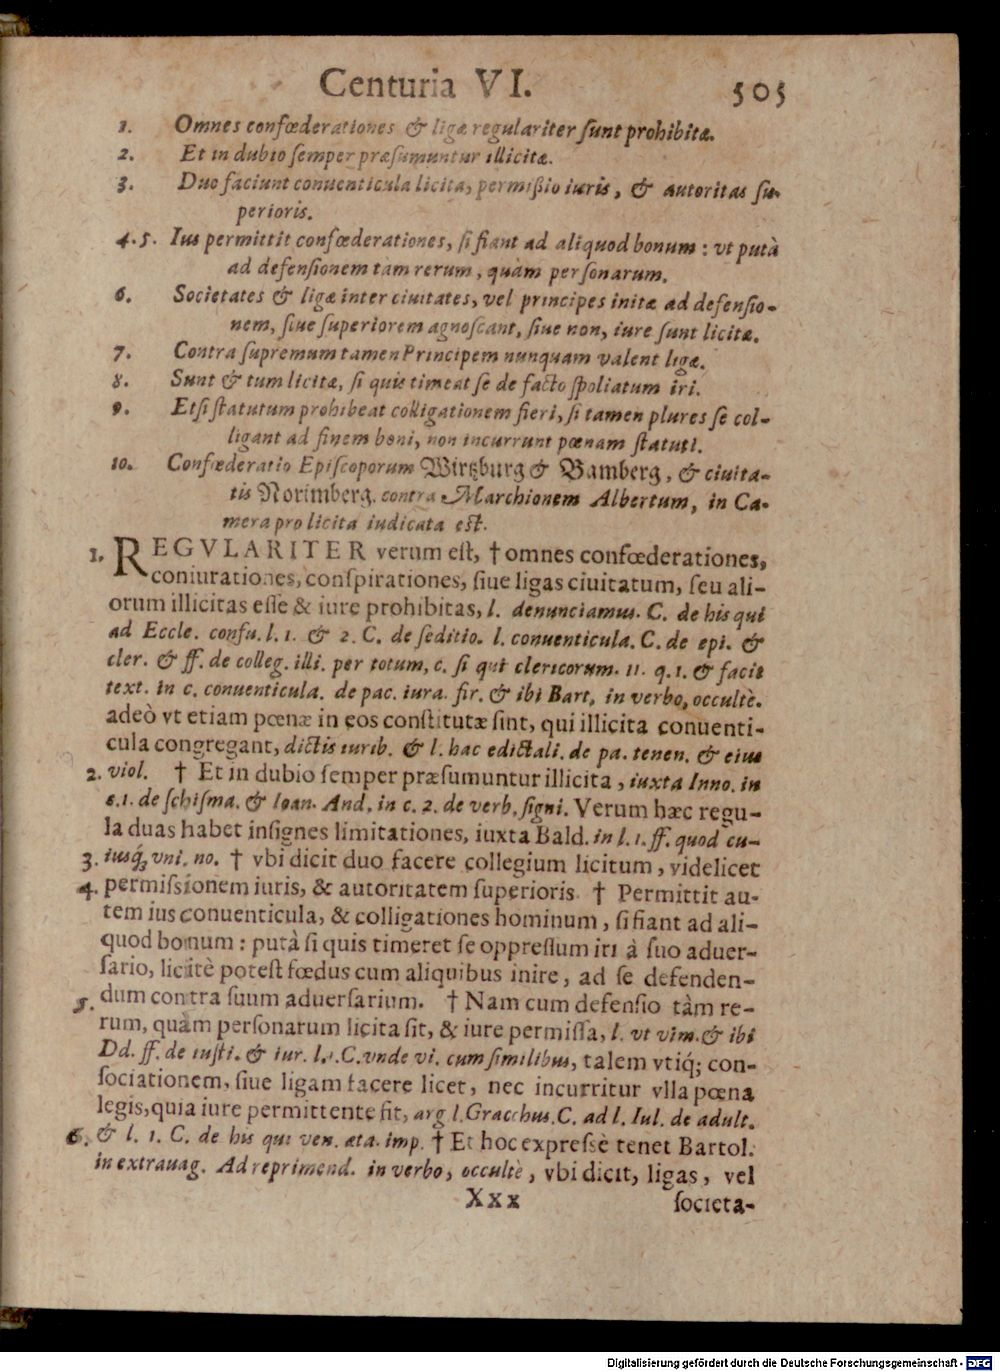 Centuria VI. 505
1. Omnes confœderationes & ligæ regulariter ſunt prohibitæ.
2. Et in dubio ſemper præſumuntur illicitæ.
3. Duo faciunt conuenticula licita, permißio iuris, & autoritas ſu-
perioris.
4. 5. Ius permittit confœderationes, ſi fiant ad aliquod bonum : vt putà
ad defenſionem tàm rerum, quàm perſonarum.
6. Societates & ligæ inter ciuitates, vel principes initæ ad defenſio-
nem, ſiue ſuperiorem agnoſcant, ſiue non, iure ſunt licitæ.
7. Contra ſupremum tamen Principem nunquam valent ligæ.
8. Sunt & tum licitæ, ſi quis timeat ſe de facto ſpoliatum iri.
9. Etſi ſtatutum prohibeat colligationem fieri, ſi tamen plures ſe col-
ligant ad finem boni, non incurrunt pœnam ſtatuti.
10. Confœderatio Epiſcoporum Wirtzburg & Bamberg, & ciuita-
tis Norimberg. contra Marchionem Albertum, in Ca-
mera pro licita iudicata eſt.
1. REGVLARITER verum eſt, † omnes confœderationes,
coniurationes, conſpirationes, ſiue ligas ciuitatum, ſeu ali-
orum illicitas eſſe & iure prohibitas, l. denunciamus. C. de his qui
ad Eccle. confu. l. 1. & 2. C. de ſeditio. l. conuenticula. C. de epi. &
cler. & ff. de colleg. illi. per totum, c. ſi qui clericorum. 11. q. 1. & facit
text. in c. conuenticula. de pac. iura. fir. & ibi Bart. in verbo, occultè.
adeò vt etiam pœnæ in eos conſtitutæ ſint, qui illicita conuenti-
cula congregant, dictis iurib. & l. hac edictali. de pa. tenen. & eius
2. viol. † Et in dubio ſemper præſumuntur illicita, iuxta Inno. in
c. 1. de ſchiſma. & Ioan. And. in c. 2. de verb. ſigni. Verum hæc regu-
la duas habet inſignes limitationes, iuxta Bald. in l. 1. ff. quod cu-
3. iusq́; vni. no. † vbi dicit duo facere collegium licitum, videlicet
4. permiſsionem iuris, & autoritatem ſuperioris. † Permittit au-
tem ius conuenticula, & colligationes hominum, ſi fiant ad ali-
quod bonum : putà ſi quis timeret ſe oppreſſum iri à ſuo aduer-
ſario, licitè poteſt fœdus cum aliquibus inire, ad ſe defenden-
5. dum contra ſuum aduerſarium. † Nam cum defenſio tàm re-
rum, quàm perſonarum licita ſit, & iure permiſſa, l. vt vim. & ibi
Dd. ff. de iuſti. & iur. l. 1. C. vnde vi. cum ſimilibus, talem vtiq́; con-
ſociationem, ſiue ligam facere licet, nec incurritur vlla pœna
legis, quia iure permittente fit, arg l. Gracchus. C. ad l. Iul. de adult.
6. & l. 1. C. de his qui ven. æta. imp. † Et hoc expreſsè tenet Bartol.
in extrauag. Ad reprimend. in verbo, occultè, vbi dicit, ligas, vel
Xxx ſocieta-
Digitalisierung gefördert durch die Deutsche Forschungsgemeinschaft - DFG